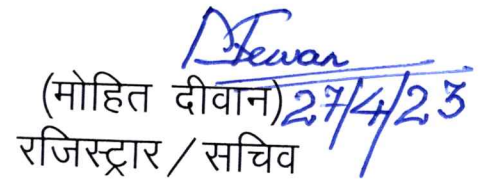 (मोहित दीवान) 27/4/23
रजिस्ट्रार / सचिव